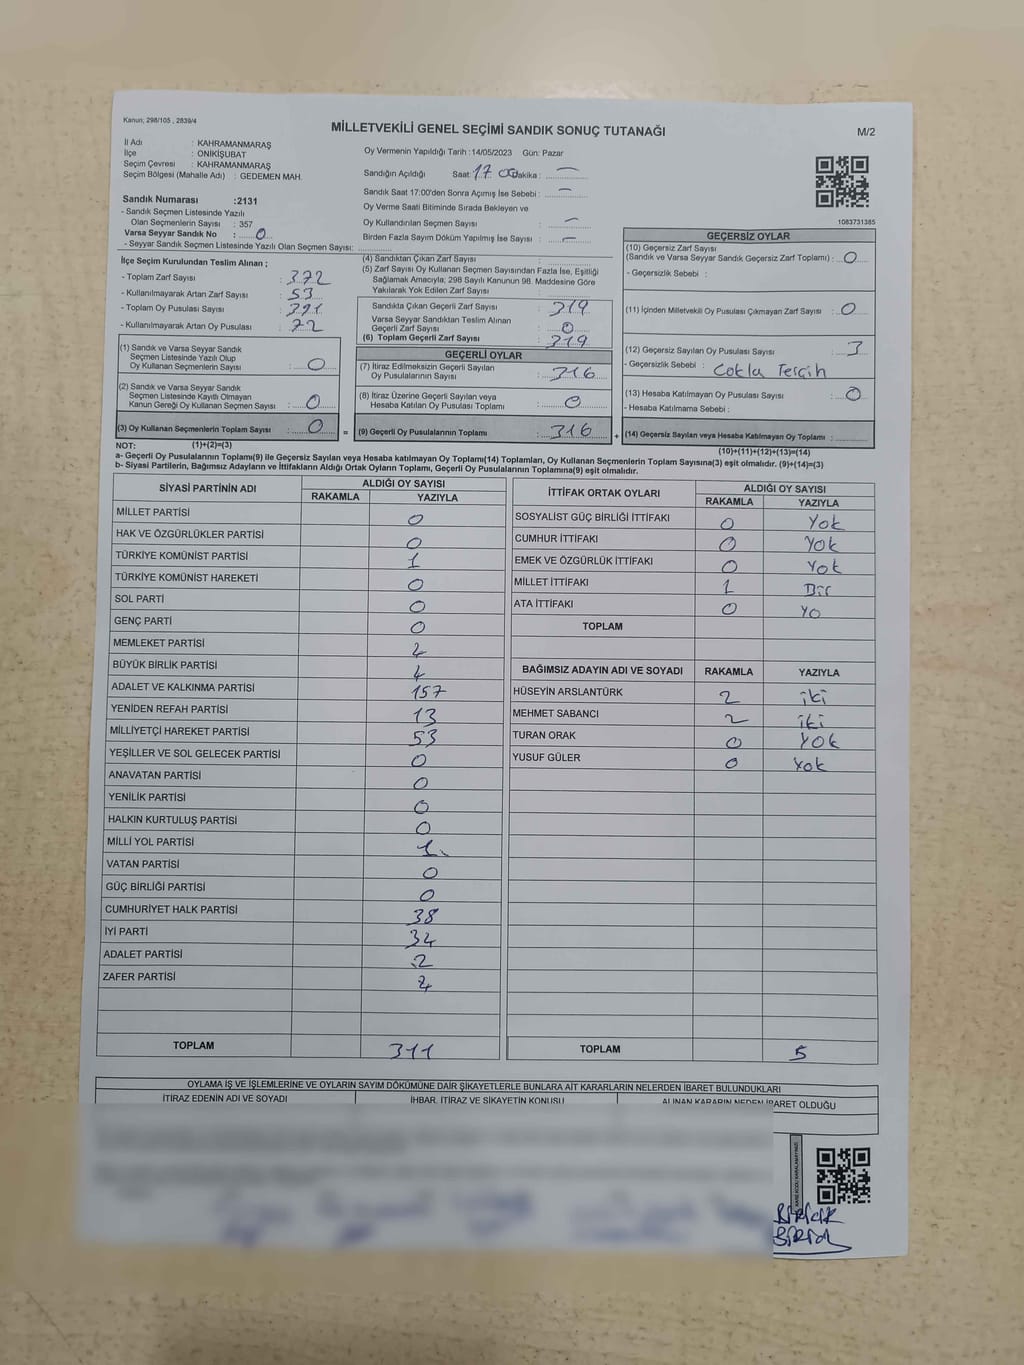 Kanun; 298/105 , 2839/4
MİLLETVEKİLİ GENEL SEÇİMİ SANDIK SONUÇ TUTANAĞI
M/2
İl Adı : KAHRAMANMARAŞ
İlçe : ONİKİŞUBAT
Seçim Çevresi : KAHRAMANMARAŞ
Seçim Bölgesi (Mahalle Adı) : GEDEMEN MAH.
Sandık Numarası :2131
- Sandık Seçmen Listesinde Yazılı
Olan Seçmenlerin Sayısı : 357
Varsa Seyyar Sandık No : 0
- Seyyar Sandık Seçmen Listesinde Yazılı Olan Seçmen Sayısı:
Oy Vermenin Yapıldığı Tarih :14/05/2023 Gün: Pazar
Sandığın Açıldığı Saat: 17 00 Dakika : —
Sandık Saat 17:00'den Sonra Açımış İse Sebebi : —
Oy Verme Saati Bitiminde Sırada Bekleyen ve
Oy Kullandırılan Seçmen Sayısı : —
Birden Fazla Sayım Döküm Yapılmış İse Sayısı : —
1083731385
İlçe Seçim Kurulundan Teslim Alınan ;
- Toplam Zarf Sayısı : 372
- Kullanılmayarak Artan Zarf Sayısı : 53
- Toplam Oy Pusulası Sayısı : 391
- Kullanılmayarak Artan Oy Pusulası : 72
(1) Sandık ve Varsa Seyyar Sandık
Seçmen Listesinde Yazılı Olup
Oy Kullanan Seçmenlerin Sayısı : 0
(2) Sandık ve Varsa Seyyar Sandık
Seçmen Listesinde Kayıtlı Olmayan
Kanun Gereği Oy Kullanan Seçmen Sayısı : 0
(3) Oy Kullanan Seçmenlerin Toplam Sayısı : 0
(1)+(2)=(3)
(4) Sandıktan Çıkan Zarf Sayısı :
(5) Zarf Sayısı Oy Kullanan Seçmen Sayısından Fazla İse, Eşitliği
Sağlamak Amacıyla; 298 Sayılı Kanunun 98. Maddesine Göre
Yakılarak Yok Edilen Zarf Sayısı :
Sandıkta Çıkan Geçerli Zarf Sayısı : 319
Varsa Seyyar Sandıktan Teslim Alınan
Geçerli Zarf Sayısı : 0
(6) Toplam Geçerli Zarf Sayısı : 319
GEÇERLİ OYLAR
(7) İtiraz Edilmeksizin Geçerli Sayılan
Oy Pusulalarının Sayısı : 316
(8) İtiraz Üzerine Geçerli Sayılan veya
Hesaba Katılan Oy Pusulası Toplamı : 0
= (9) Geçerli Oy Pusulalarının Toplamı : 316
GEÇERSİZ OYLAR
(10) Geçersiz Zarf Sayısı
(Sandık ve Varsa Seyyar Sandık Geçersiz Zarf Toplamı) : 0
- Geçersizlik Sebebi :
(11) İçinden Milletvekili Oy Pusulası Çıkmayan Zarf Sayısı : 0
(12) Geçersiz Sayılan Oy Pusulası Sayısı : 3
- Geçersizlik Sebebi : Çokla Terçih
(13) Hesaba Katılmayan Oy Pusulası Sayısı : 0
- Hesaba Katılmama Sebebi :
+ (14) Geçersiz Sayılan veya Hesaba Katılmayan Oy Toplamı :
(10)+(11)+(12)+(13)=(14)
NOT:
a- Geçerli Oy Pusulalarının Toplamı(9) ile Geçersiz Sayılan veya Hesaba katılmayan Oy Toplamı(14) Toplamları, Oy Kullanan Seçmenlerin Toplam Sayısına(3) eşit olmalıdır. (9)+(14)=(3)
b- Siyasi Partilerin, Bağımsız Adayların ve İttifakların Aldığı Ortak Oyların Toplamı, Geçerli Oy Pusulalarının Toplamına(9) eşit olmalıdır.
SİYASİ PARTİNİN ADI ALDIĞI OY SAYISI
RAKAMLA YAZIYLA
MİLLET PARTİSİ 0
HAK VE ÖZGÜRLÜKLER PARTİSİ 0
TÜRKİYE KOMÜNİST PARTİSİ 1
TÜRKİYE KOMÜNİST HAREKETİ 0
SOL PARTİ 0
GENÇ PARTİ 0
MEMLEKET PARTİSİ 2
BÜYÜK BİRLİK PARTİSİ 4
ADALET VE KALKINMA PARTİSİ 157
YENİDEN REFAH PARTİSİ 13
MİLLİYETÇİ HAREKET PARTİSİ 53
YEŞİLLER VE SOL GELECEK PARTİSİ 0
ANAVATAN PARTİSİ 0
YENİLİK PARTİSİ 0
HALKIN KURTULUŞ PARTİSİ 0
MİLLİ YOL PARTİSİ 1
VATAN PARTİSİ 0
GÜÇ BİRLİĞİ PARTİSİ 0
CUMHURİYET HALK PARTİSİ 38
İYİ PARTİ 34
ADALET PARTİSİ 2
ZAFER PARTİSİ
TOPLAM 311
İTTİFAK ORTAK OYLARI ALDIĞI OY SAYISI
RAKAMLA YAZIYLA
SOSYALİST GÜÇ BİRLİĞİ İTTİFAKI 0 Yok
CUMHUR İTTİFAKI 0 Yok
EMEK VE ÖZGÜRLÜK İTTİFAKI 0 Yok
MİLLET İTTİFAKI 1 Bir
ATA İTTİFAKI 0 Yo
TOPLAM
BAĞIMSIZ ADAYIN ADI VE SOYADI RAKAMLA YAZIYLA
HÜSEYİN ARSLANTÜRK 2 iki
MEHMET SABANCI 2 iki
TURAN ORAK 0 Yok
YUSUF GÜLER 0 Yok
TOPLAM 5
OYLAMA İŞ VE İŞLEMLERİNE VE OYLARIN SAYIM DÖKÜMÜNE DAİR ŞİKAYETLERLE BUNLARA AİT KARARLARIN NELERDEN İBARET BULUNDUKLARI
İTİRAZ EDENİN ADI VE SOYADI İHBAR, İTİRAZ VE ŞİKAYETİN KONUSU ALINAN KARARIN NEDEN İBARET OLDUĞU